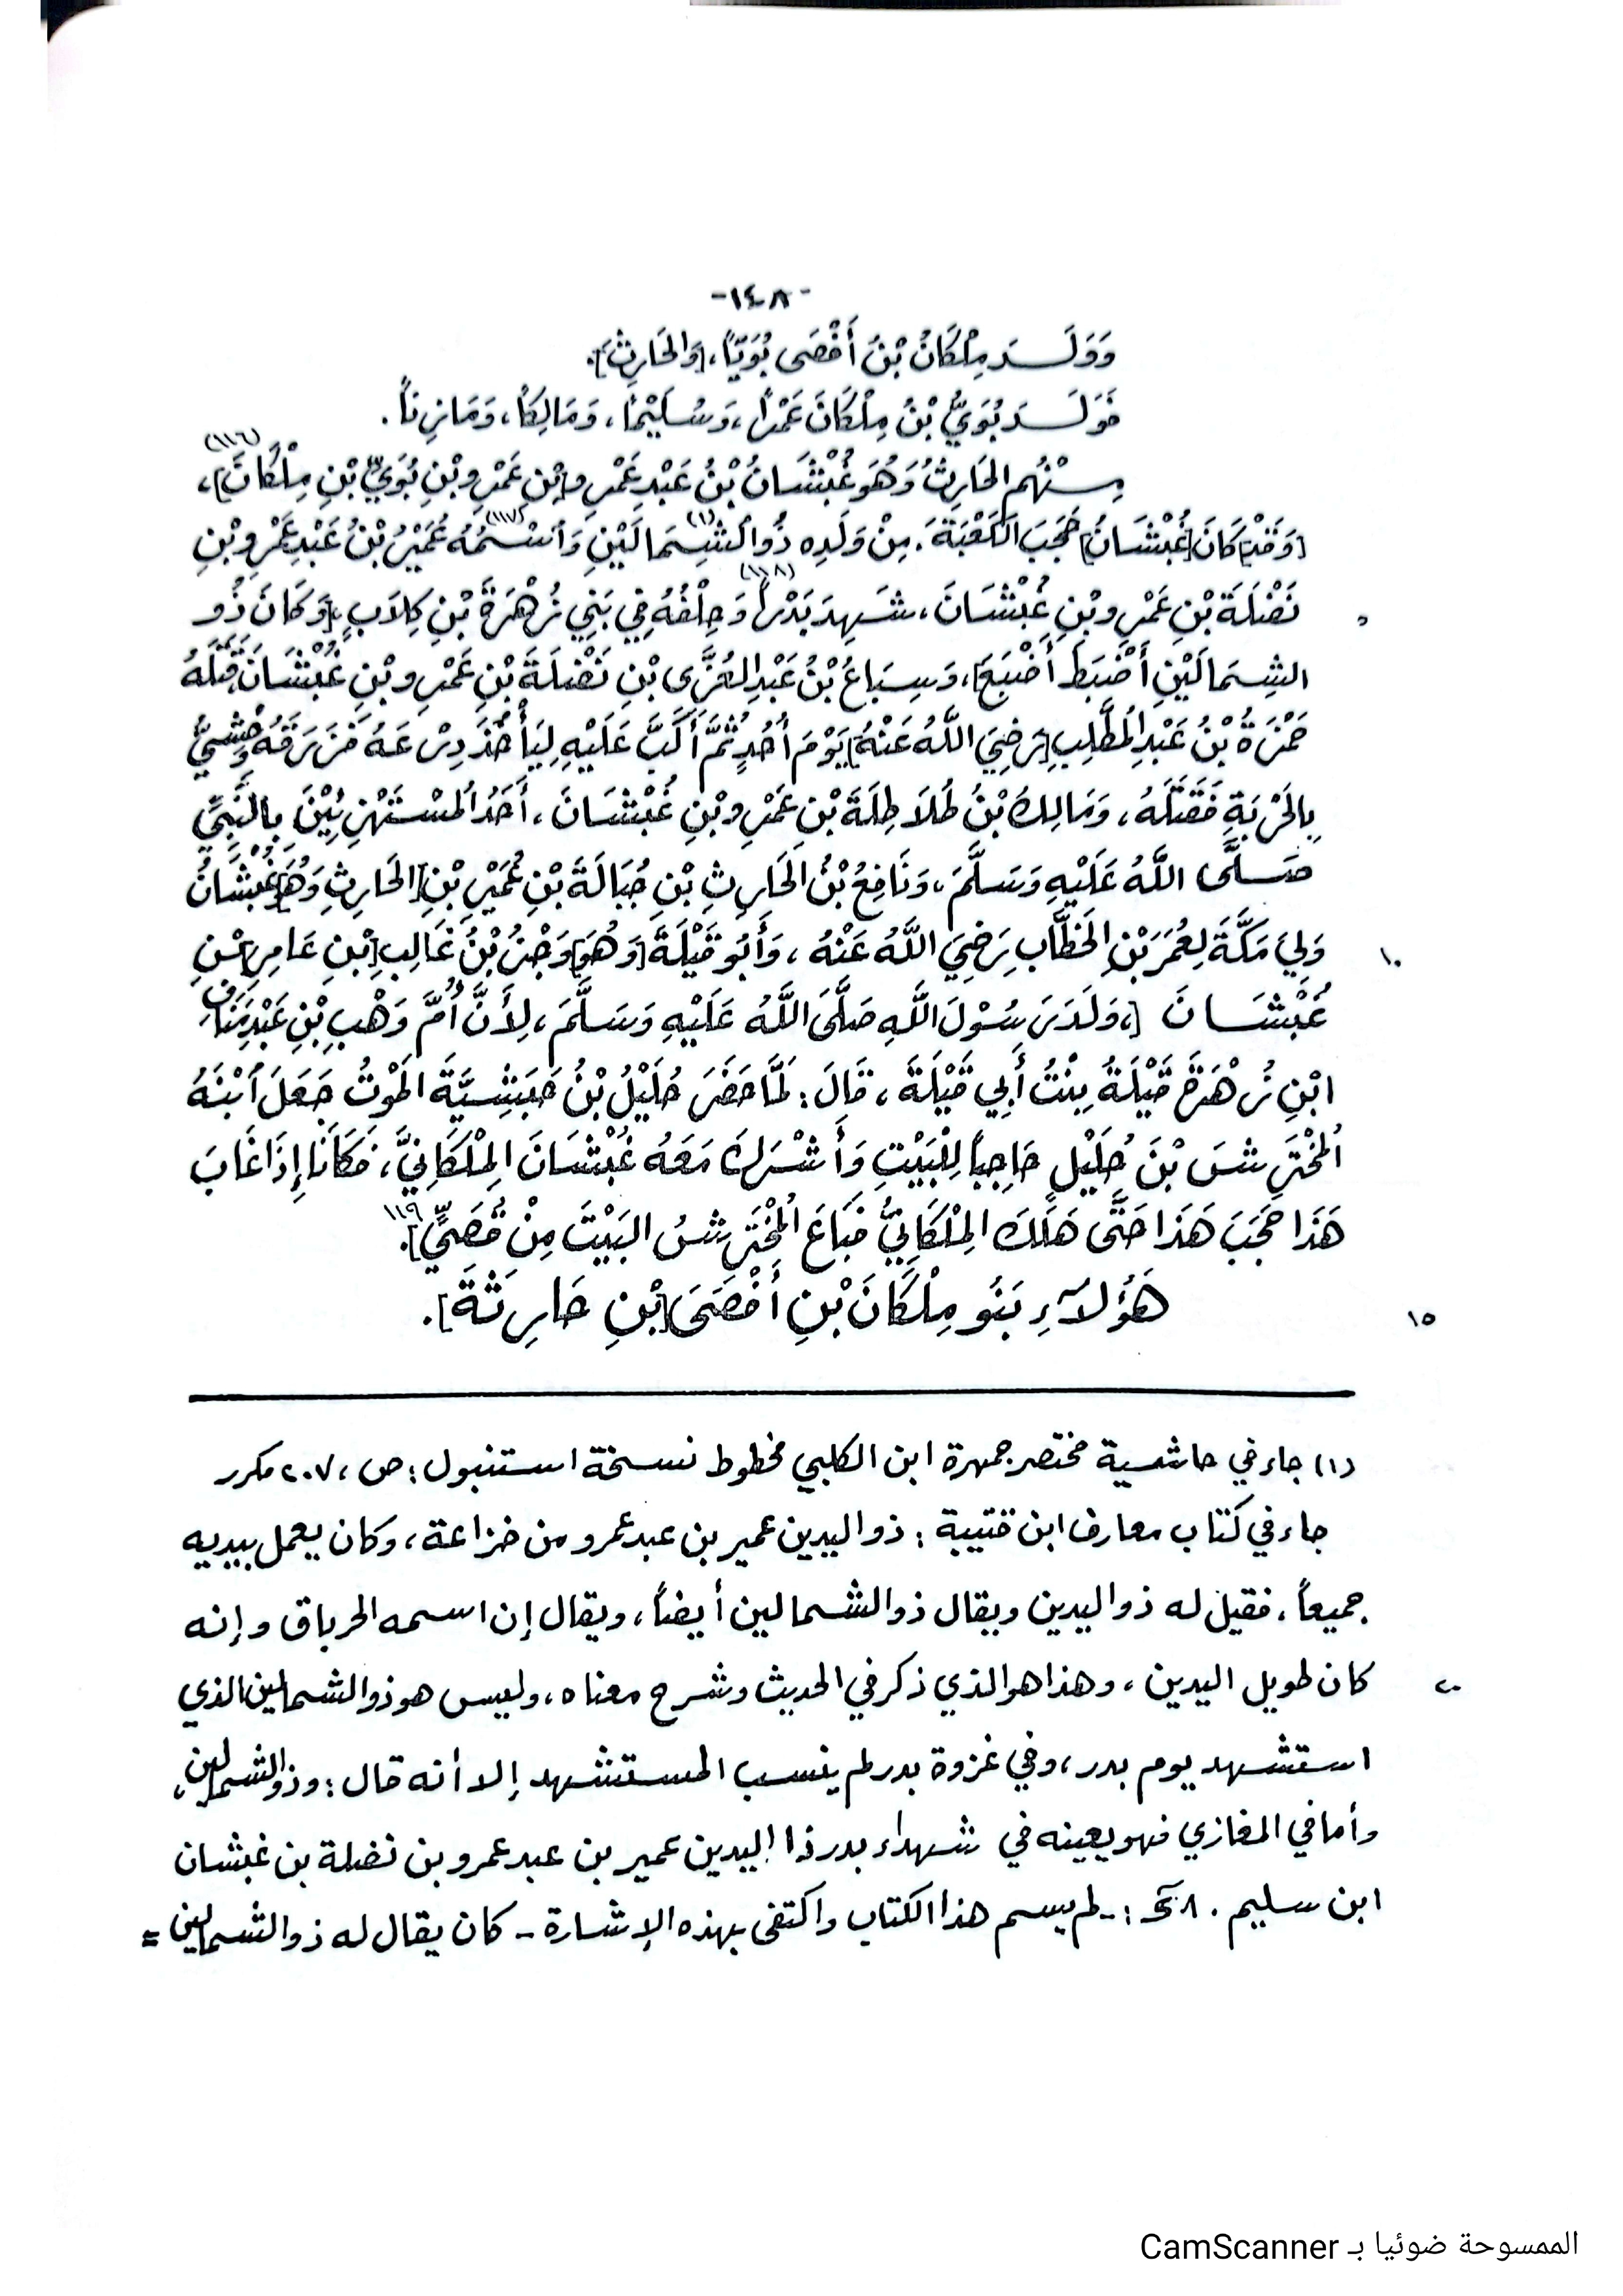 -١٤٨-
وَوَلَـدَ مِلْكَانُ بْنُ أَفْصَى بُوَيّاً، [وَالحَارِثَ].
فَوَلَـدَ بُوَيُّ بْنُ مِلْكَانَ عَمْراً، وَسُلَيْماً، وَمَالِكاً، وَمَازِناً.
مِنْهُم الحَارِثُ وَهُوَ غُبْشَانُ بْنُ عَبْدِ عَمْرِو [بْنِ عَمْرِو بْنِ بُوَيِّ بْنِ مِلْكَانَ]، (١١٦)
[وَقَدْ] كَانَ [غُبْشَانُ] حَجَبَ الكَعْبَةَ. مِنْ وَلَدِهِ ذُو الشِّمَالَيْنِ (١) وَاسْمُهُ (١١٧) عُمَيْرُ بْنُ عَبْدِ عَمْرِو بْنِ
نَضْلَةَ بْنِ عَمْرِو بْنِ غُبْشَانَ، شَهِدَ بَدْراً (١١٨) وَحِلْفُهُ فِي بَنِي زُهْرَةَ بْنِ كِلَابٍ، [وَكَانَ ذُو ٥
الشِّمَالَيْنِ أَضْبَطَ أَضْبَعَ]، وَسِبَاعُ بْنُ عَبْدِ العُزَّى بْنِ نَضْلَةَ بْنِ عَمْرِو بْنِ غُبْشَانَ قَتَلَهُ
حَمْزَةُ بْنُ عَبْدِ المُطَّلِبِ [رَضِيَ اللَّهُ عَنْهُ] يَوْمَ أُحُدٍ ثُمَّ أَكَبَّ عَلَيْهِ لِيَأْخُذَ دِرْعَهُ فَزَرَقَهُ وَحْشِيٌّ
بِالحَرْبَةِ فَقَتَلَهُ، وَمَالِكُ بْنُ طُلَاطِلَةَ بْنِ عَمْرِو بْنِ غُبْشَانَ، أَحَدُ المُسْتَهْزِئِيْنَ بِالنَّبِيِّ
صَلَّى اللَّهُ عَلَيْهِ وَسَلَّمَ، وَنَافِعُ بْنُ الحَارِثِ بْنِ حُبَالَةَ بْنِ عُمَيْرِ بْنِ [الحَارِثِ وَهُوَ] غُبْشَانُ
وَلِيَ مَكَّةَ لِعُمَرَ بْنِ الخَطَّابِ رَضِيَ اللَّهُ عَنْهُ، وَأَبُو قَيْلَةَ [وَهُوَ] وَجْزُ بْنُ غَالِبِ [بْنِ عَامِرِ] بْنِ ١٠
غُبْشَانَ [، وَلَدَ رَسُوْلَ اللَّهِ صَلَّى اللَّهُ عَلَيْهِ وَسَلَّمَ، لِأَنَّ أُمَّ وَهْبِ بْنِ عَبْدِ مَنَافِ
ابْنِ زُهْرَةَ قَيْلَةُ بِنْتُ أَبِي قَيْلَةَ، قَالَ: لَمَّا حَضَرَ حُلَيْلُ بْنُ حَبَشِيَّةَ المَوْتُ جَعَلَ ابْنَهُ
المُحْتَرِشَ بْنَ حُلَيْلٍ حَاجِباً لِلْبَيْتِ وَأَشْرَكَ مَعَهُ غُبْشَانَ المِلْكَانِيَّ، فَكَانَا إِذَا غَابَ
هَذَا حَجَبَ هَذَا حَتَّى هَلَكَ المِلْكَانِيُّ فَبَاعَ المُحْتَرِشُ البَيْتَ مِنْ قُصَيٍّ ١١٩].
هَؤُلَاءِ بَنُو مِلْكَانَ بْنِ أَفْصَى [بْنِ حَارِثَةَ]. ١٥
(١) جاء في حاشية مختصر جمهرة ابن الكلبي مخطوط نسخة استنبول: ص، ٢٠٧ مكرر
جاء في كتاب معارف ابن قتيبة: ذو اليدين عمير بن عبد عمرو من خزاعة، وكان يعمل بيديه
جميعاً، فقيل له ذو اليدين ويقال ذو الشمالين أيضاً، ويقال إن اسمه الخرباق وإنه
كان طويل اليدين، وهذا هو الذي ذكر في الحديث وشرح معناه، وليس هو ذو الشمالين الذي ٢٠
استشهد يوم بدر، وفي غزوة بدر لم ينسب المستشهد إلا أنه قال: وذو الشمالين،
وأما في المغازي فهو يعينه في شهداء بدر ذا اليدين عمير بن عبد عمرو بن نضلة بن غبشان
ابن سليم. :- لم يسم هذا الكتاب واكتفى بهذه الإشارة - كان يقال له ذو الشمالين =
الممسوحة ضوئيا بـ CamScanner